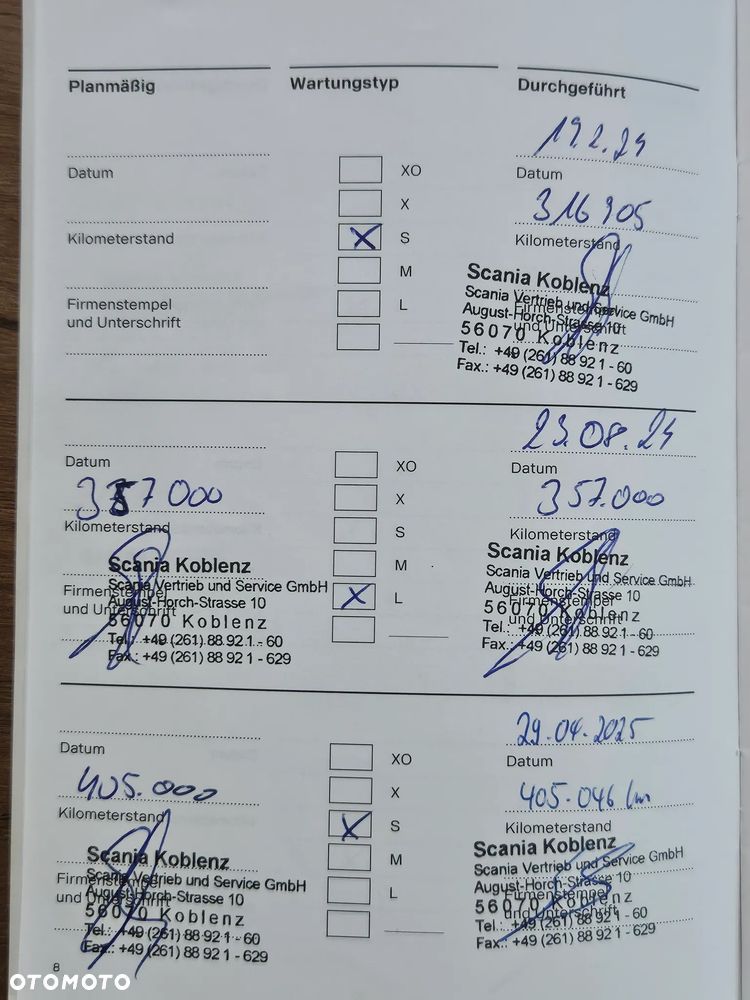 Planmäßig
Wartungstyp
Durchgeführt
19.2.24
Datum
XO
Datum
X
316 905
Kilometerstand
S
Kilometerstand
M
Firmenstempel
und Unterschrift
L
Firmenstempel
und Unterschrift
Scania Koblenz
Scania Vertrieb und Service GmbH
August-Horch-Strasse 10
56070 Koblenz
Tel.: +49 (261) 88 92 1 - 60
Fax.: +49 (261) 88 92 1 - 629
23.08.24
Datum
XO
Datum
357 000
X
357.000
Kilometerstand
S
Kilometerstand
M
Firmenstempel
und Unterschrift
Scania Koblenz
Scania Vertrieb und Service GmbH
August-Horch-Strasse 10
56070 Koblenz
Tel.: +49 (261) 88 92 1 - 60
Fax.: +49 (261) 88 92 1 - 629
L
Firmenstempel
und Unterschrift
Scania Koblenz
Scania Vertrieb und Service GmbH
August-Horch-Strasse 10
56070 Koblenz
Tel.: +49 (261) 88 92 1 - 60
Fax.: +49 (261) 88 92 1 - 629
29.04.2025
Datum
XO
Datum
405.000
X
405.046 km
Kilometerstand
S
Kilometerstand
M
Firmenstempel
und Unterschrift
Scania Koblenz
Scania Vertrieb und Service GmbH
August-Horch-Strasse 10
56070 Koblenz
Tel.: +49 (261) 88 92 1 - 60
Fax.: +49 (261) 88 92 1 - 629
L
Firmenstempel
und Unterschrift
Scania Koblenz
Scania Vertrieb und Service GmbH
August-Horch-Strasse 10
56070 Koblenz
Tel.: +49 (261) 88 92 1 - 60
Fax.: +49 (261) 88 92 1 - 629
8
OTOMOTO